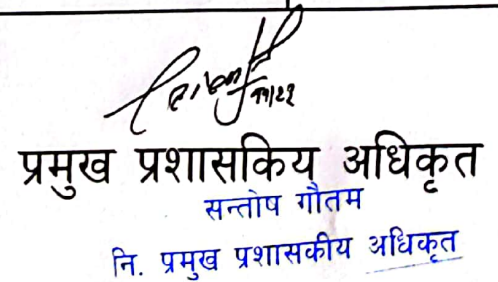 प्रमुख प्रशासकिय अधिकृत
सन्तोष गौतम
नि. प्रमुख प्रशासकीय अधिकृत